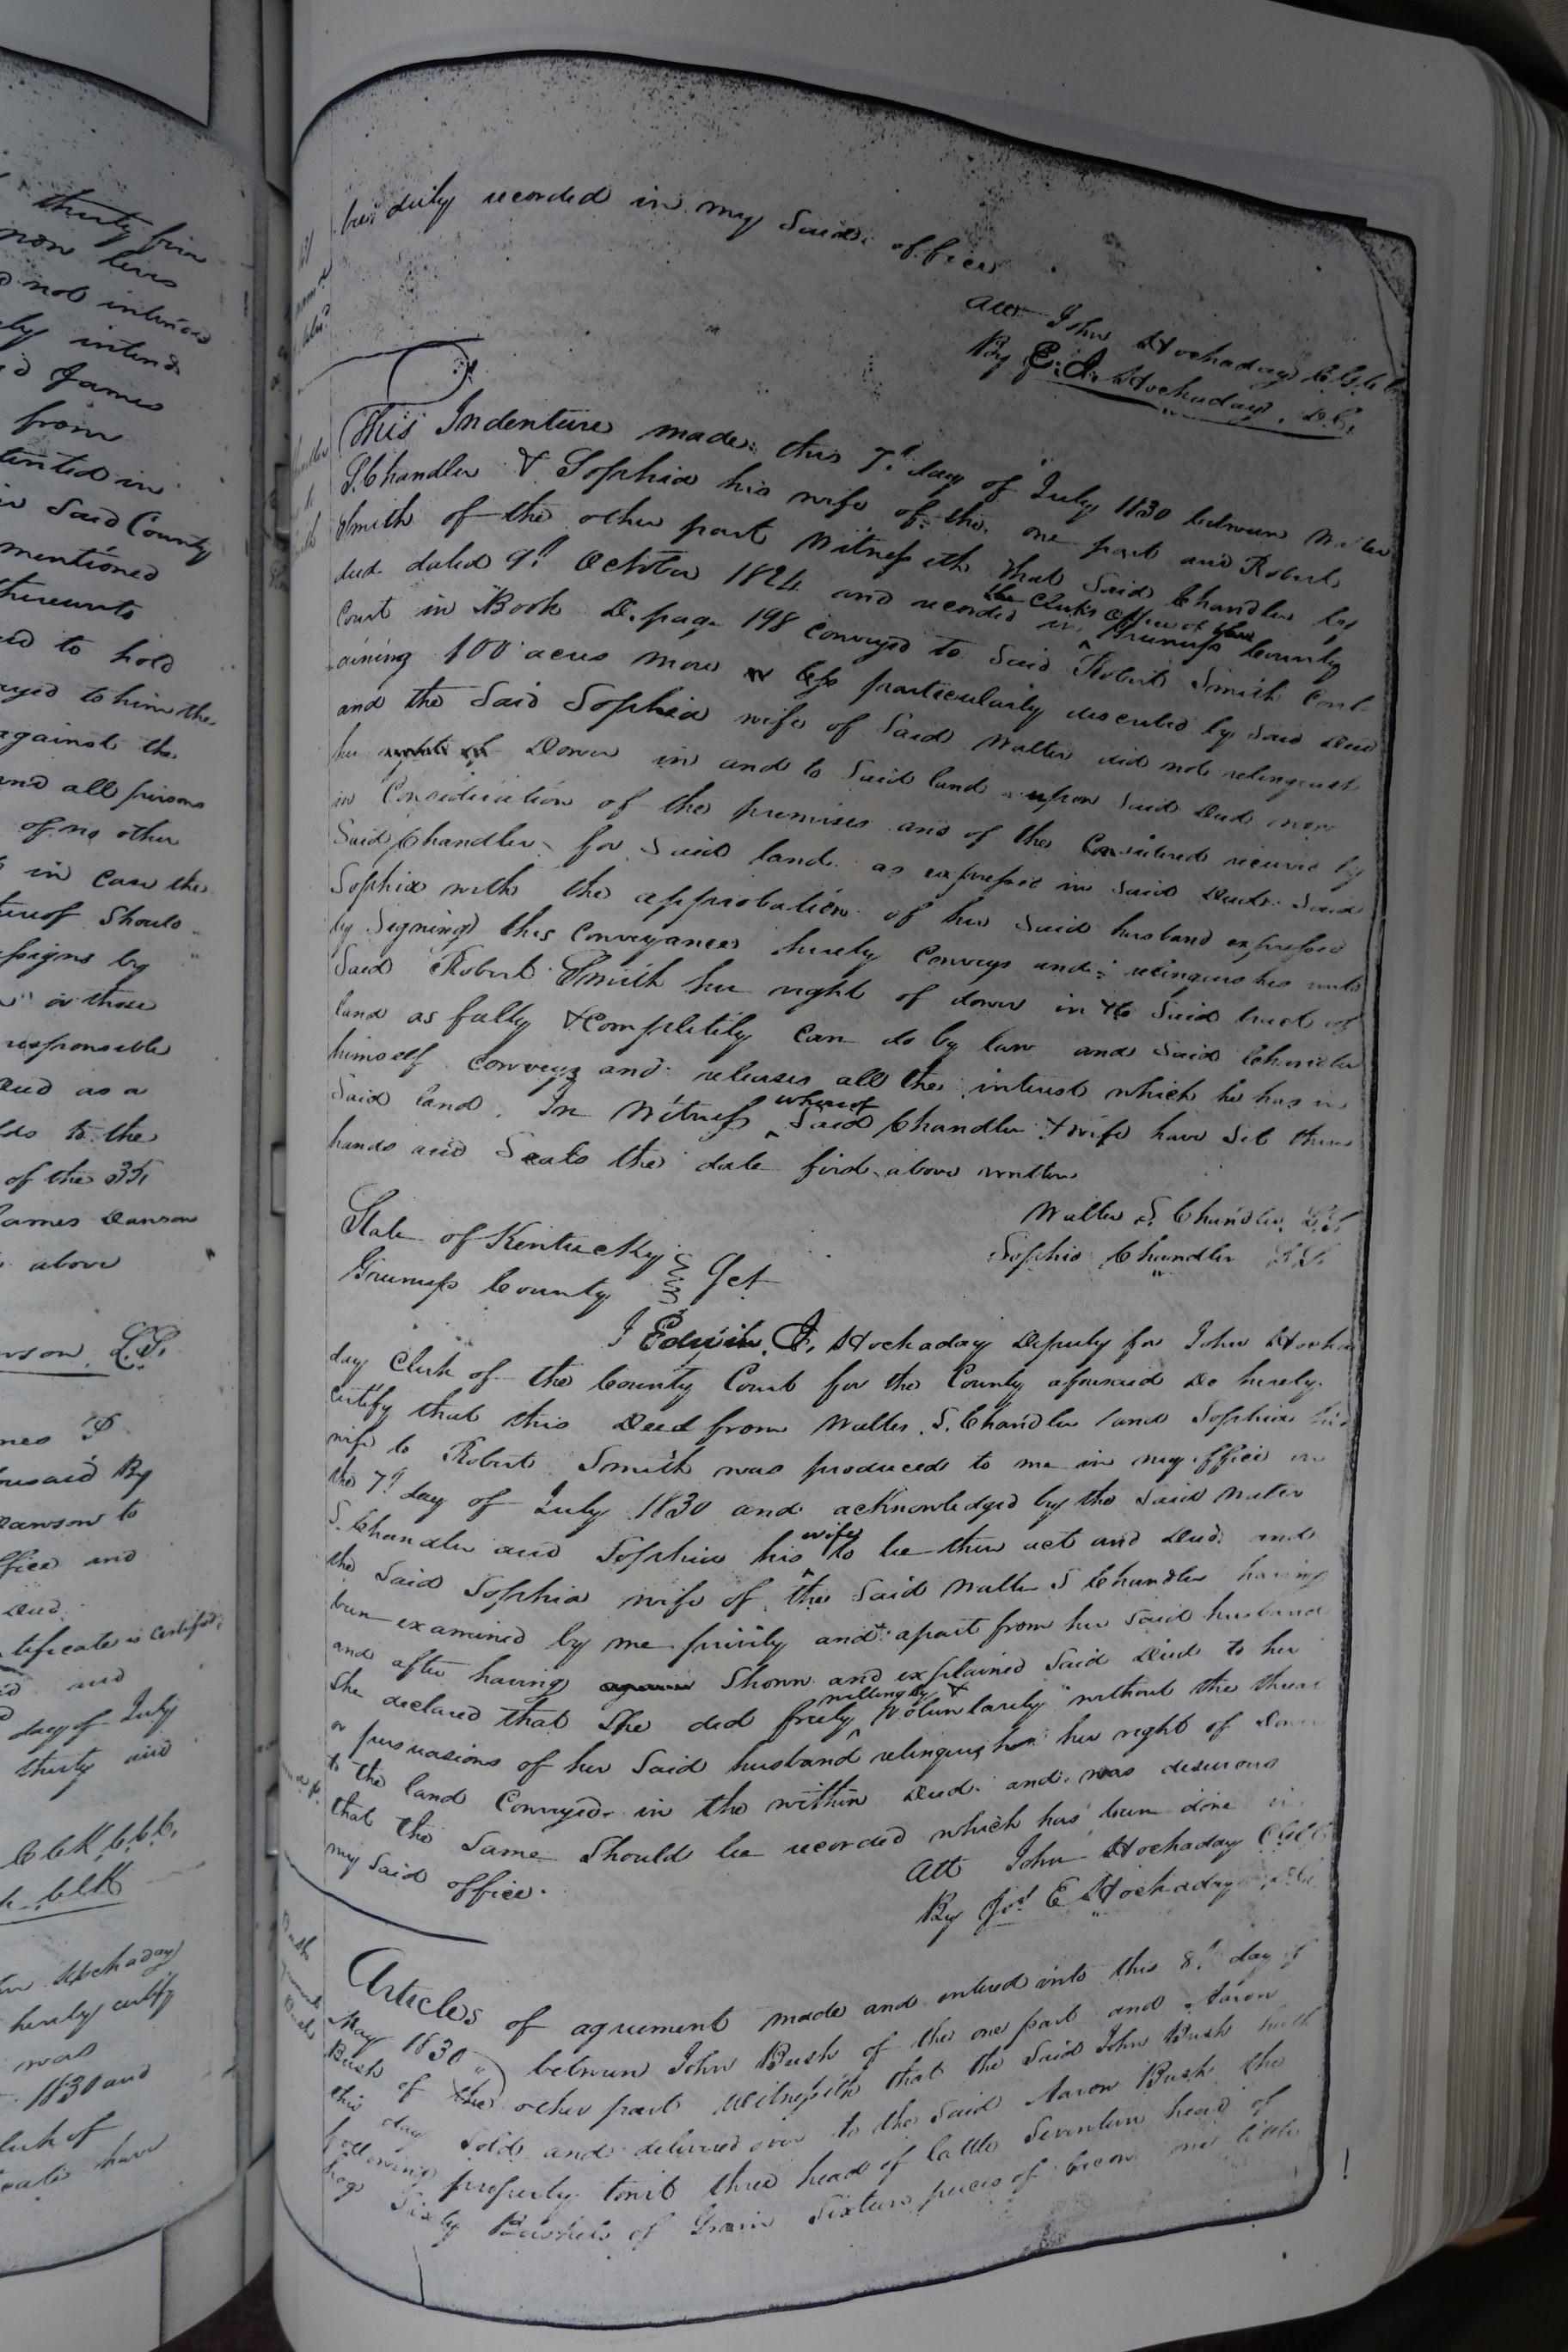 thirty five
non lives
not intends
ly intend
d James
from
tented in
Said County
mentioned
thereunto
ed to hold
eyed to him the
against the
and all persons
of no other
in case the
thereof Should
ssigns by
or those
responsible
eed as a
lds to the
of the 35
James Dawson
above
L.S.
mes P
foresaid By
Dawson to
ffice and
Deed
tificate is certified
and
day of July
thirty and
Clk C.C.C.
Clk
Hockaday
hereby certify
was
1830 and
lerk of
cate have
been duly recorded in my Said office
Att John Hockaday C.G.C.C
By E. I. Hockaday. D.C.
This Indenture made this 7th day of July 1830 between Walter
S. Chandler & Sophia his wife of the one part and Robert
Smith of the other part Witnesseth that Said Chandler by
deed dated 9th October 1824 and recorded in the Clerks office of the Greenup County
Court in Book D. page 198 conveyed to Said Robert Smith Cont-
aining 100 acres more or less particularly described by Said Deed
and the Said Sophia wife of Said Walter did not relinquish
her right of Dower in and to Said land upon Said Deed now
in Consideration of the premises and of the Considered received by
Said Chandler for Said land as expressed in Said Deed Said
Sophia with the approbation of her Said husband expressed
by Signing this Conveyance hereby Conveys and relinquishes unto
Said Robert Smith her right of dower in to Said tract of
land as fully & Completely can do by law and Said Chandler
himself Conveys and releases all the interest which he has in
Said land. In Witness whereof Said Chandler & wife have Set there
hands and Seals the date first above written
Walter S. Chandler L.S.
Sophia Chandler L.S.
State of Kentucky
Greenup County } Sct
I Edwin I. Hockaday Deputy for John Hocka
day Clerk of the County Court for the County aforesaid Do hereby
certify that this Deed from Walter S. Chandler and Sophia his
wife to Robert Smith was produced to me in my office on
the 7th day of July 1830 and acknowledged by the Said Walter
S. Chandler and Sophia his wife to be their act and Deed and
the Said Sophia wife of the Said Walter S Chandler having
been examined by me privily and apart from her Said husband
and after having again Shown and explained Said Deed to her
She declared that She did freely willingly & Voluntarily without the threats
or persuasions of her Said husband relinquish her right of Dower
to the land Conveyed in the within Deed and was desirous
that the Same Should be recorded which has been done in
my Said office.
Att John Hockaday C.G.C.C
By Jos E Hockaday D.C.
Articles of agreement made and entered into this 8th day of
May 1830 between John Bush of the one part and Aaron
Bush of the other part Witnesseth that the Said John Bush hath
this day Sold and delivered over to the Said Aaron Bush the
following property towit three head of Cattle Seventeen head of
hogs Sixty Bushels of Grain Sixteen pieces of bacon one little